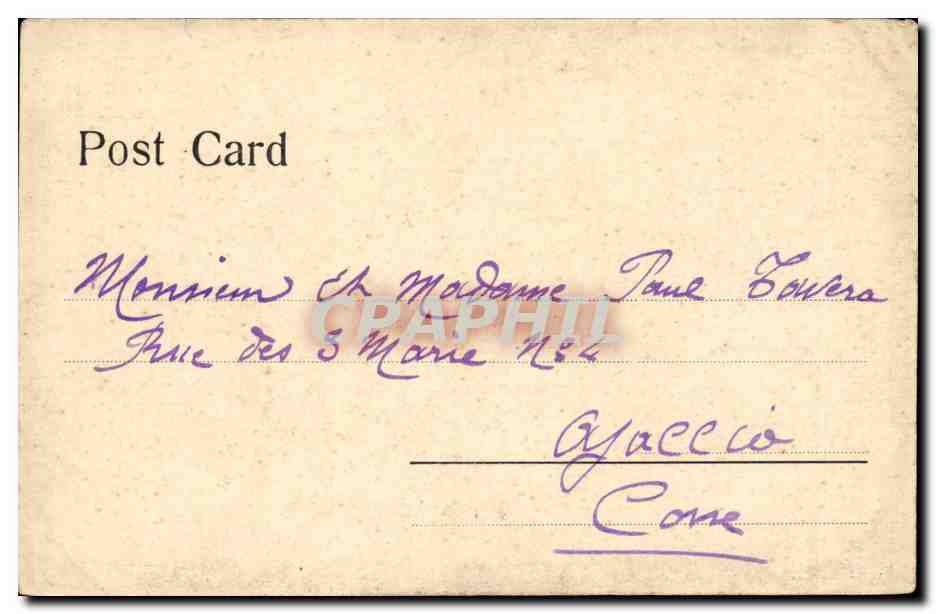 Post Card
Monsieur et Madame Paul Tavera
CPARAPHIL
Rue des 3 Marie No 4
Ajaccio
Corse